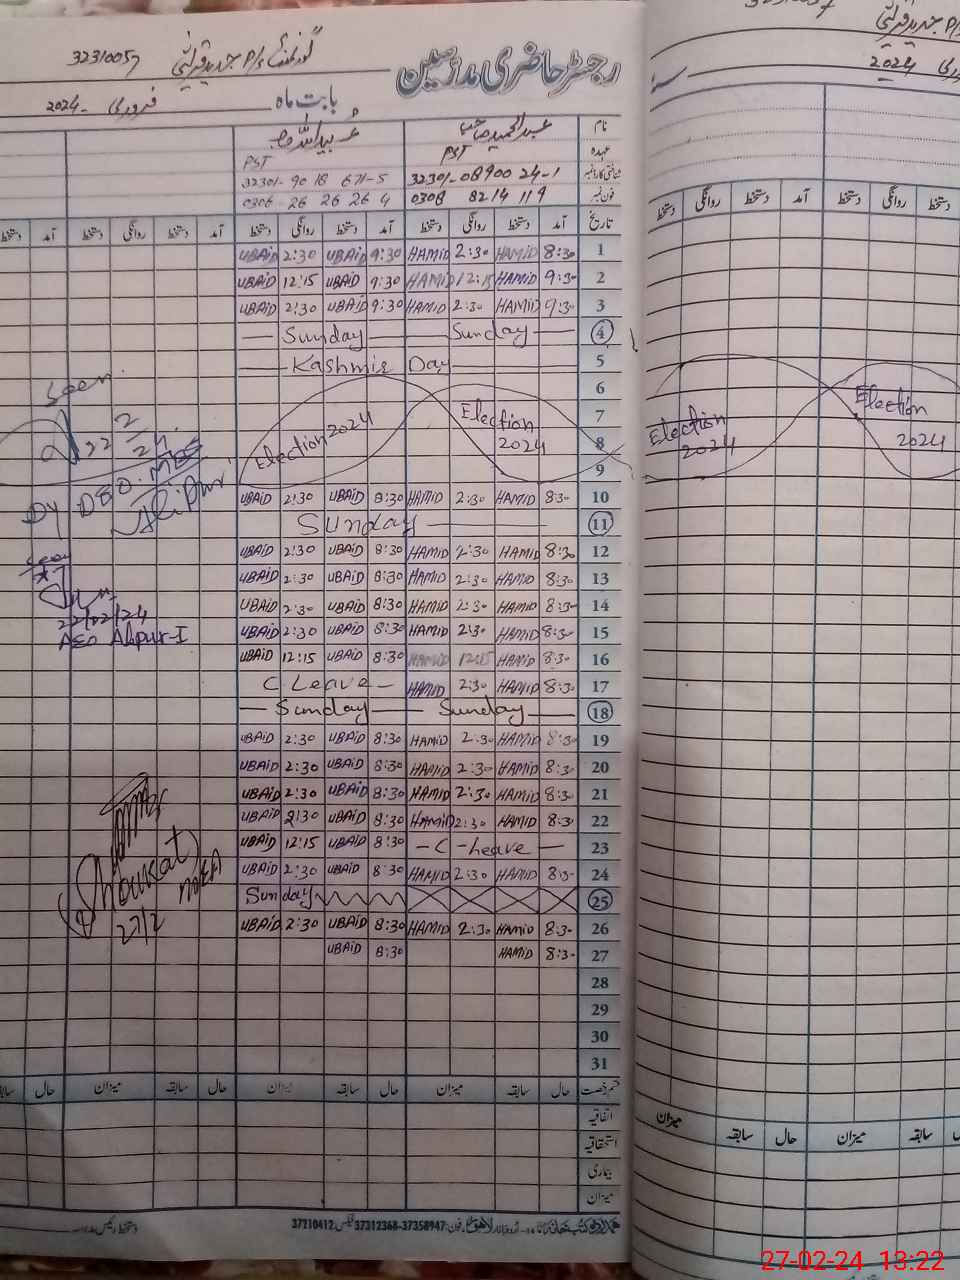 رجسٹر حاضری مدرسین
گورنمنٹ P/S جدید قریشی 32310057
بابت ماہ فروری 2024
نام عبدالحمید صاحب عبیداللہ صاحب
عہدہ PST PST
شناختی کارڈ نمبر 32301-0890024-1 32301-9018671-5
فون نمبر 0308 8214119 0306 26 26 26 4
تاریخ آمد دستخط روانگی دستخط آمد دستخط روانگی دستخط آمد دستخط روانگی دستخط آمد دستخط
1 8:30 HAMID 2:30 HAMID 9:30 UBAID 2:30 UBAID
2 9:30 HAMID 12:15 HAMID 9:30 UBAID 12:15 UBAID
3 9:30 HAMID 2:30 HAMID 9:30 UBAID 2:30 UBAID
4 Sunday Sunday
5 Kashmir Day
6
7 Election 2024
8 Election 2024
9
10 8:30 HAMID 2:30 HAMID 8:30 UBAID 2:30 UBAID
11 Sunday
12 8:30 HAMID 2:30 HAMID 8:30 UBAID 2:30 UBAID
13 8:30 HAMID 2:30 HAMID 8:30 UBAID 2:30 UBAID
14 8:30 HAMID 2:30 HAMID 8:30 UBAID 2:30 UBAID
15 8:30 HAMID 2:30 HAMID 8:30 UBAID 2:30 UBAID
16 8:30 HAMID 12:15 HAMID 8:30 UBAID 12:15 UBAID
17 8:30 HAMID 2:30 HAMID C Leave
18 Sunday Sunday
19 8:30 HAMID 2:30 HAMID 8:30 UBAID 2:30 UBAID
20 8:30 HAMID 2:30 HAMID 8:30 UBAID 2:30 UBAID
21 8:30 HAMID 2:30 HAMID 8:30 UBAID 2:30 UBAID
22 8:30 HAMID 2:30 HAMID 8:30 UBAID 2:30 UBAID
23 - C - Leave - 8:30 UBAID 12:15 UBAID
24 8:30 HAMID 2:30 HAMID 8:30 UBAID 2:30 UBAID
25 Sunday
26 8:30 HAMID 2:30 HAMID 8:30 UBAID 2:30 UBAID
27 8:30 HAMID 8:30 UBAID
28
29
30
31
قسم رخصت حال سابقہ میزان حال سابقہ میزان حال سابقہ میزان حال سابقہ
اتفاقیہ
استحقاقیہ
بیماری
میزان
فون: 37358947-37312368 فیکس: 37210412
دستخط رئیس مدرسہ
Seen
22/2/24
Dy DEO. M&E
Alipur
Seen
22/02/24
AEO Alipur-I
Shoukat
MEA
27/2
32310057
P/S جدید قریشی
2024 فروری
دستخط روانگی دستخط آمد دستخط روانگی دستخط
Election 2024
Election 2024
میزان سابقہ حال میزان سابقہ
27-02-24 13:22